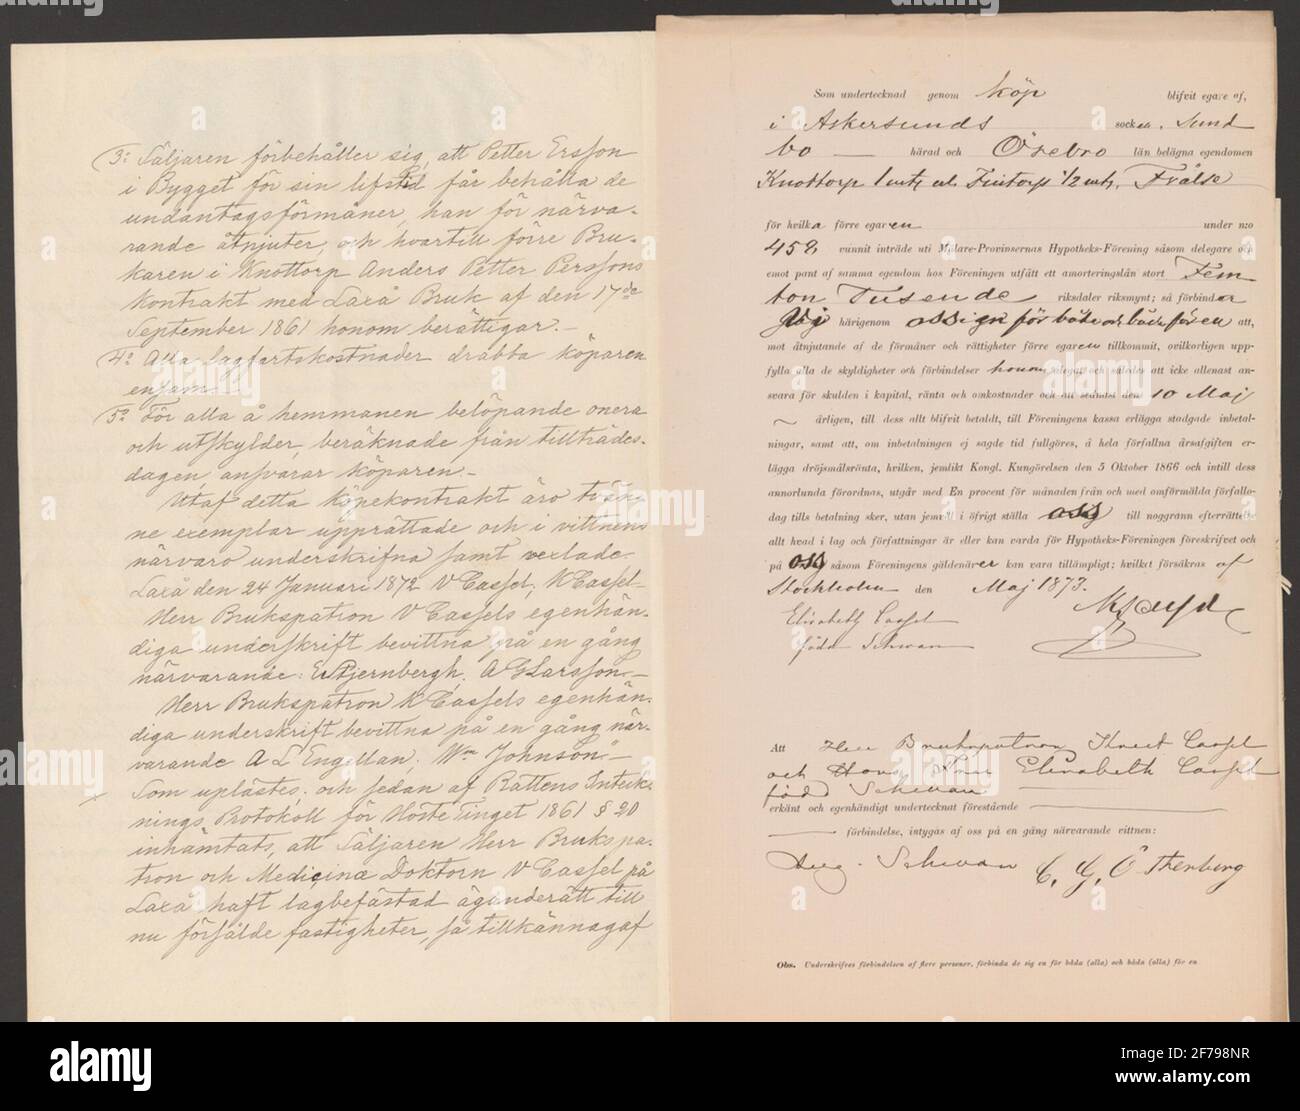 3:o Säljaren förbehåller sig, att Petter Ersson
i Bygget för sin lifstid får behålla de
undantagsförmåner, han för närva-
rande åtnjuter, och hvartill förre Bru-
karen i Knottorp Anders Petter Perssons
Kontrakt med Laxå Bruk af den 17de
September 1861 honom berättigar.-
4:o Alla lagfartskostnader drabba köparen
ensam.-
5:o För alla å hemmanen belöpande onera
och utskylder, beräknade från tillträdes-
dagen, ansvarar köparen.-
Utaf detta köpekontrakt äro tvän-
ne exemplar upprättade och i vittnens
närvaro underskrifna samt vexlade
Laxå den 24 Januari 1872 V Cassel, K Cassel-
Herr Brukspatron V Cassels egenhän-
diga underskrift bevittna på en gång
närvarande: E. Stjernbergh, A G Larsson-
Herr Brukspatron K Cassels egenhän-
diga underskrift bevittna på en gång när-
varande A L Engellan, Wm Johnson"-
Som uplästes; och sedan af Rättens Inteck-
nings Protokoll för Höste Tinget 1861 § 20
inhämtats, att Säljaren Herr Brukspa-
tron och Medicine Doktorn V Cassel på
Laxå haft lagbefästad äganderätt till
nu försålde fastigheter, så tillkännagaf
Som undertecknad genom köp blifvit egare af,
i Askersunds socken, Sund
bo — härad och Örebro län belägna egendomen
Knottorp 1 mtl och Fintorp 1/2 mtl, Frälse
för hvilka förre egaren under n:o
458, vunnit inträde uti Mälare-Provinsernas Hypotheks-Förening såsom delegare och
emot pant af samma egendom hos Föreningen utfått ett amorteringslån stort Fem
ton Tusende riksdaler riksmynt; så förbinder
Vi härigenom oss en för båda och båda för en att,
mot åtnjutande af de förmåner och rättigheter förre egaren tillkommit, ovilkorligen upp-
fylla alla de skyldigheter och förbindelser honom ålegat och således att icke allenast an-
svara för skulden i kapital, ränta och omkostnader och att sednast den 10 Maj
årligen, till dess allt blifvit betaldt, till Föreningens kassa erlägga stadgade inbetal-
ningar, samt att, om inbetalningen ej sagde tid fullgöres, å hela förfallna årsafgiften er-
lägga dröjsmålsränta, hvilken, jemlikt Kongl. Kungörelsen den 5 Oktober 1866 och intill dess
annorlunda förordnas, utgår med En procent för månaden från och med omförmälda förfallo-
dag tills betalning sker, utan jemväl i öfrigt ställa oss till noggrann efterrättelse
allt hvad i lag och författningar är eller kan varda för Hypotheks-Föreningen föreskrifvet och
på oss såsom Föreningens gäldenärer kan vara tillämpligt; hvilket försäkras af
Stockholm den Maj 1873.
K Cassel
Elisabeth Cassel
född Schwan
Att Herr Brukspatron Knut Cassel
och Hans Fru Elisabeth Cassel
född Schwan
erkänt och egenhändigt undertecknat förestående
förbindelse, intygas af oss på en gång närvarande vittnen:
Aug. Schwan C. G. Österberg
Obs. Underskrifves förbindelsen af flere personer, förbinda de sig en för båda (alla) och båda (alla) för en
alamy
alamy
Image ID: 2F798NR
www.alamy.com